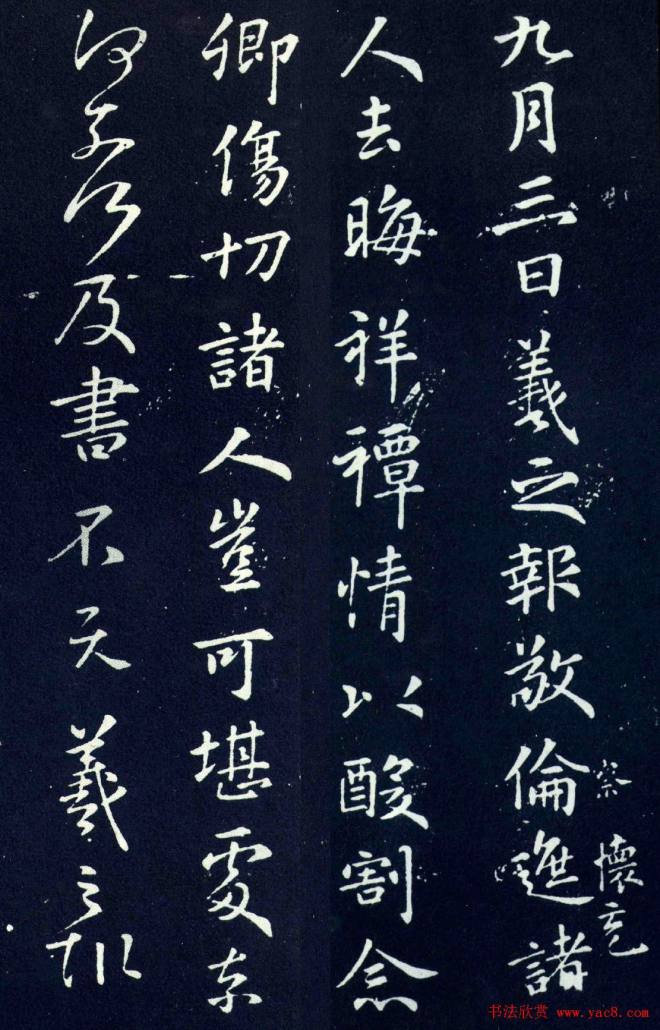 九月三日羲之報敬倫遮諸
察
懷充
人去晦祥禫情以酸割念
卿傷切諸人豈可堪處奈
何奈何及書不羲之報
书法欣赏 www.yac8.com